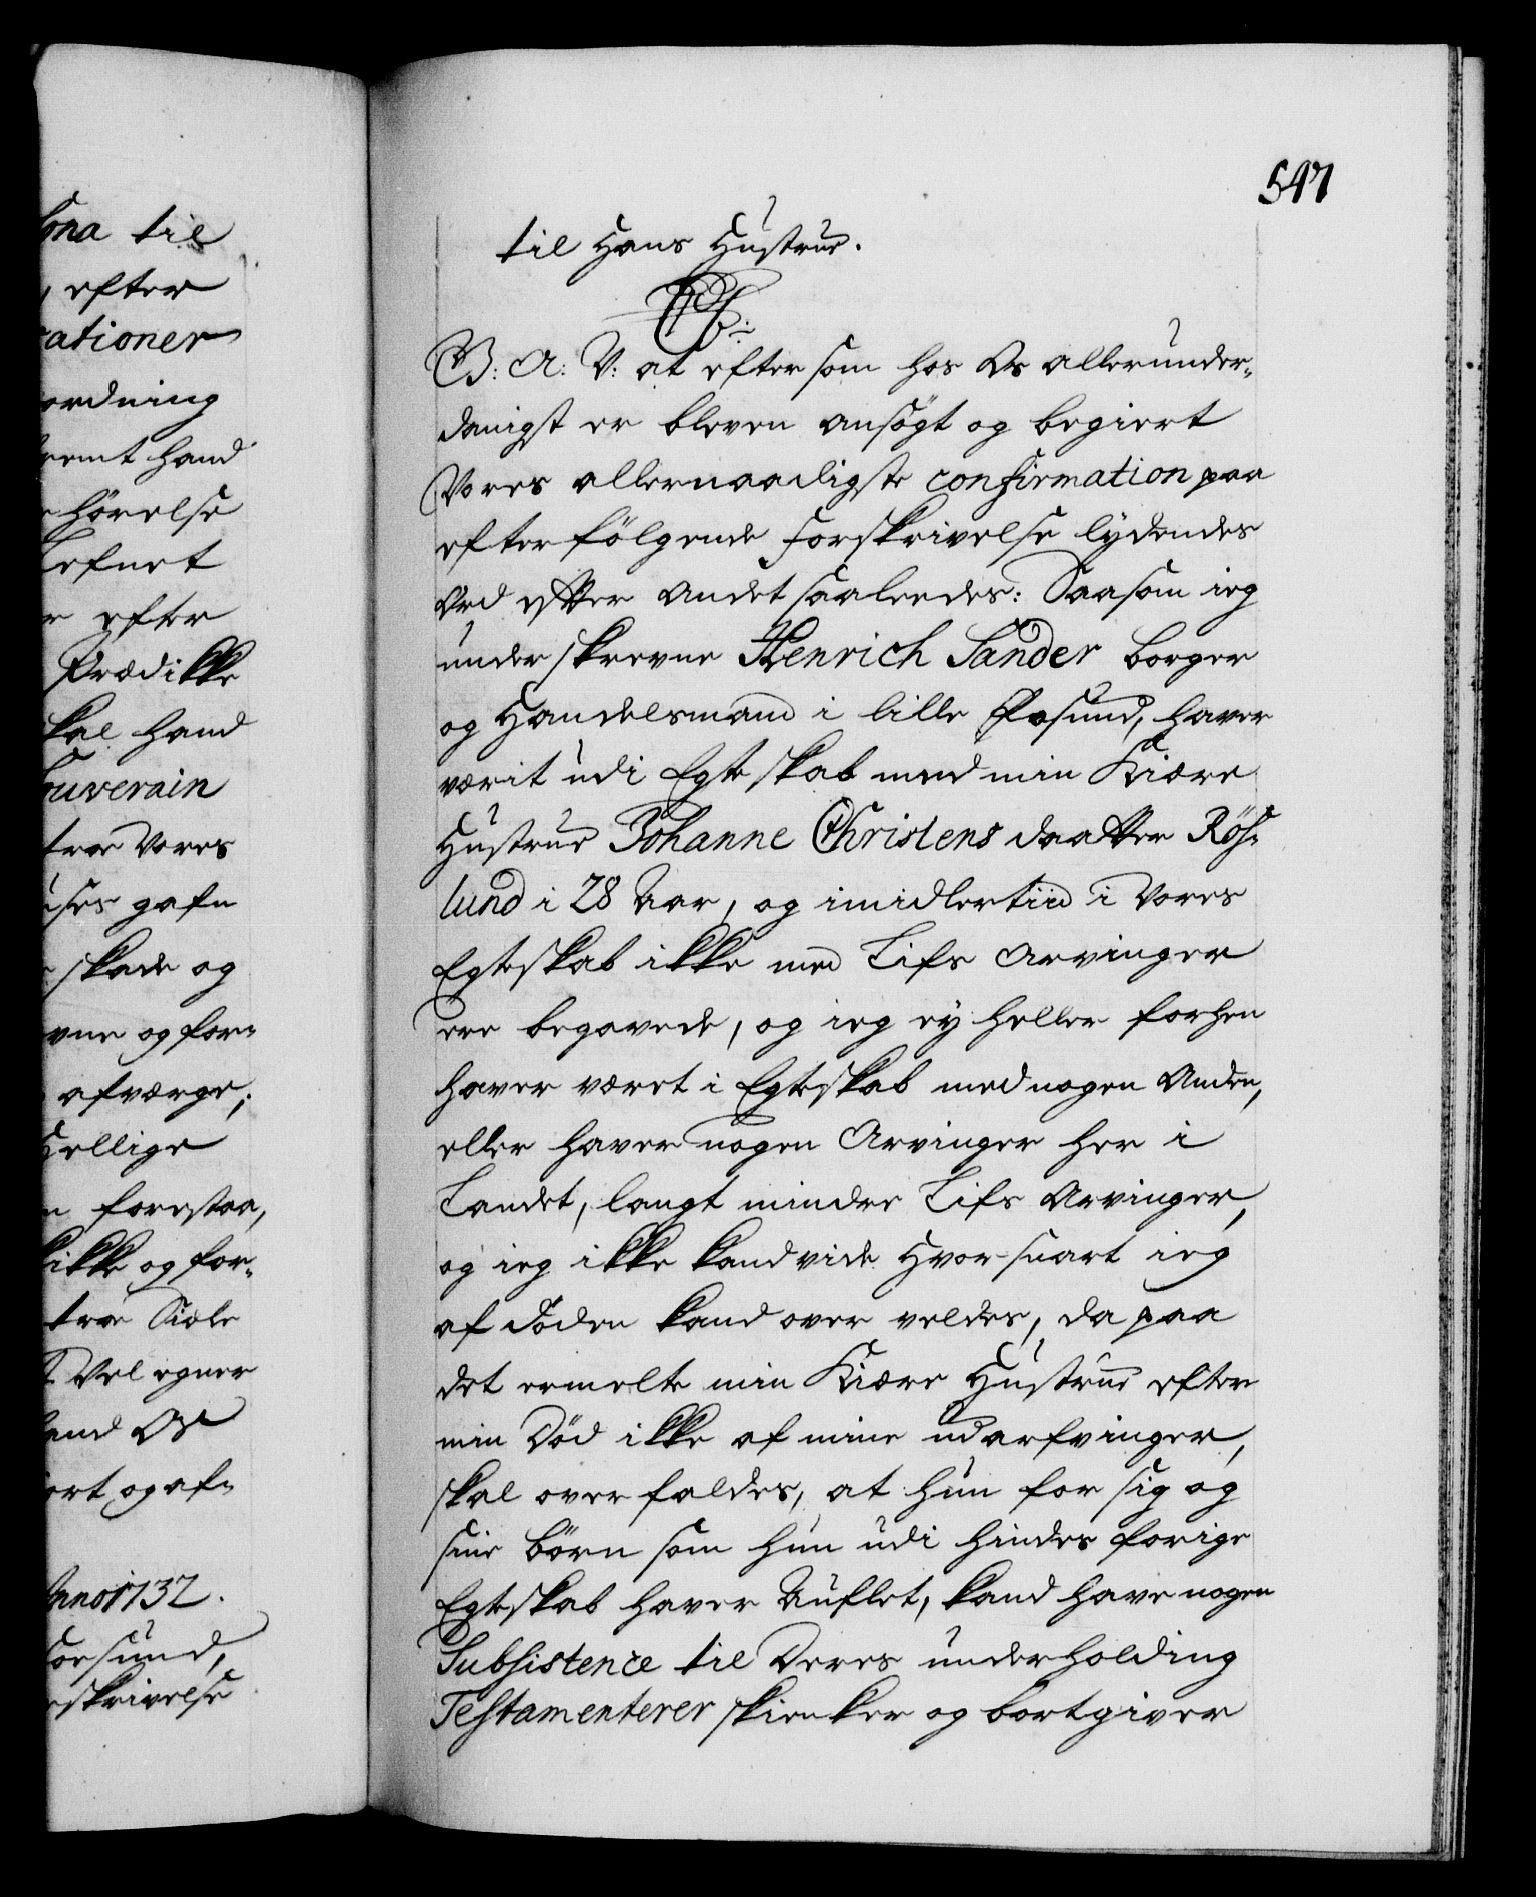 sona til
, efter
rationer
ordning
hand
hörelse
Lefnet
efter
Prædikke
skal hand
Souverain
troe Vores
gafn
skade og
og for-
afværge,
hellige
forestaa,
skikke og for-
troe Siæle
Vel egner
og af-
Anno 1732.
sund,
skrivelse
547
til Hans Hustrue.
C6.
G: A: V: at eftersom hos Os allerunder-
danigst er bleven ansögt og begiert
Vores allernaadigste confirmation paa
efterfölgende Forskrivelse lydendes
Ord effter Andet saaleedes: Saasom ieg
underskrevne Henrich Sander borger
og Handelsmand i lille Fosund, haver
værit udi Egteskab med min Kiære
Hustrue Johanne Christens daatter Rös-
lund i 28 Aar, og imidlertiid i Vores
Egteskab ikke med Lifs Arvinger
ere begavede, og ieg ey heller forhen
haver været i Egteskab med nogen Anden,
eller haver nogen Arvinger her i
Landet, langt mindre Lifs Arvinger,
og ieg ikke kand vide hvor snart ieg
af Döden kand overveldes, da paa
det ermelte min Kiære Hustrue efter
min Död ikke af mine udarfvinger,
skal overfaldes, at hun for sig og
sine börn som hun udi hindes forige
Egteskab haver Auflet, kand have nogen
Subsistence til Deres underholding
Testamenterer skienker og bortgiver